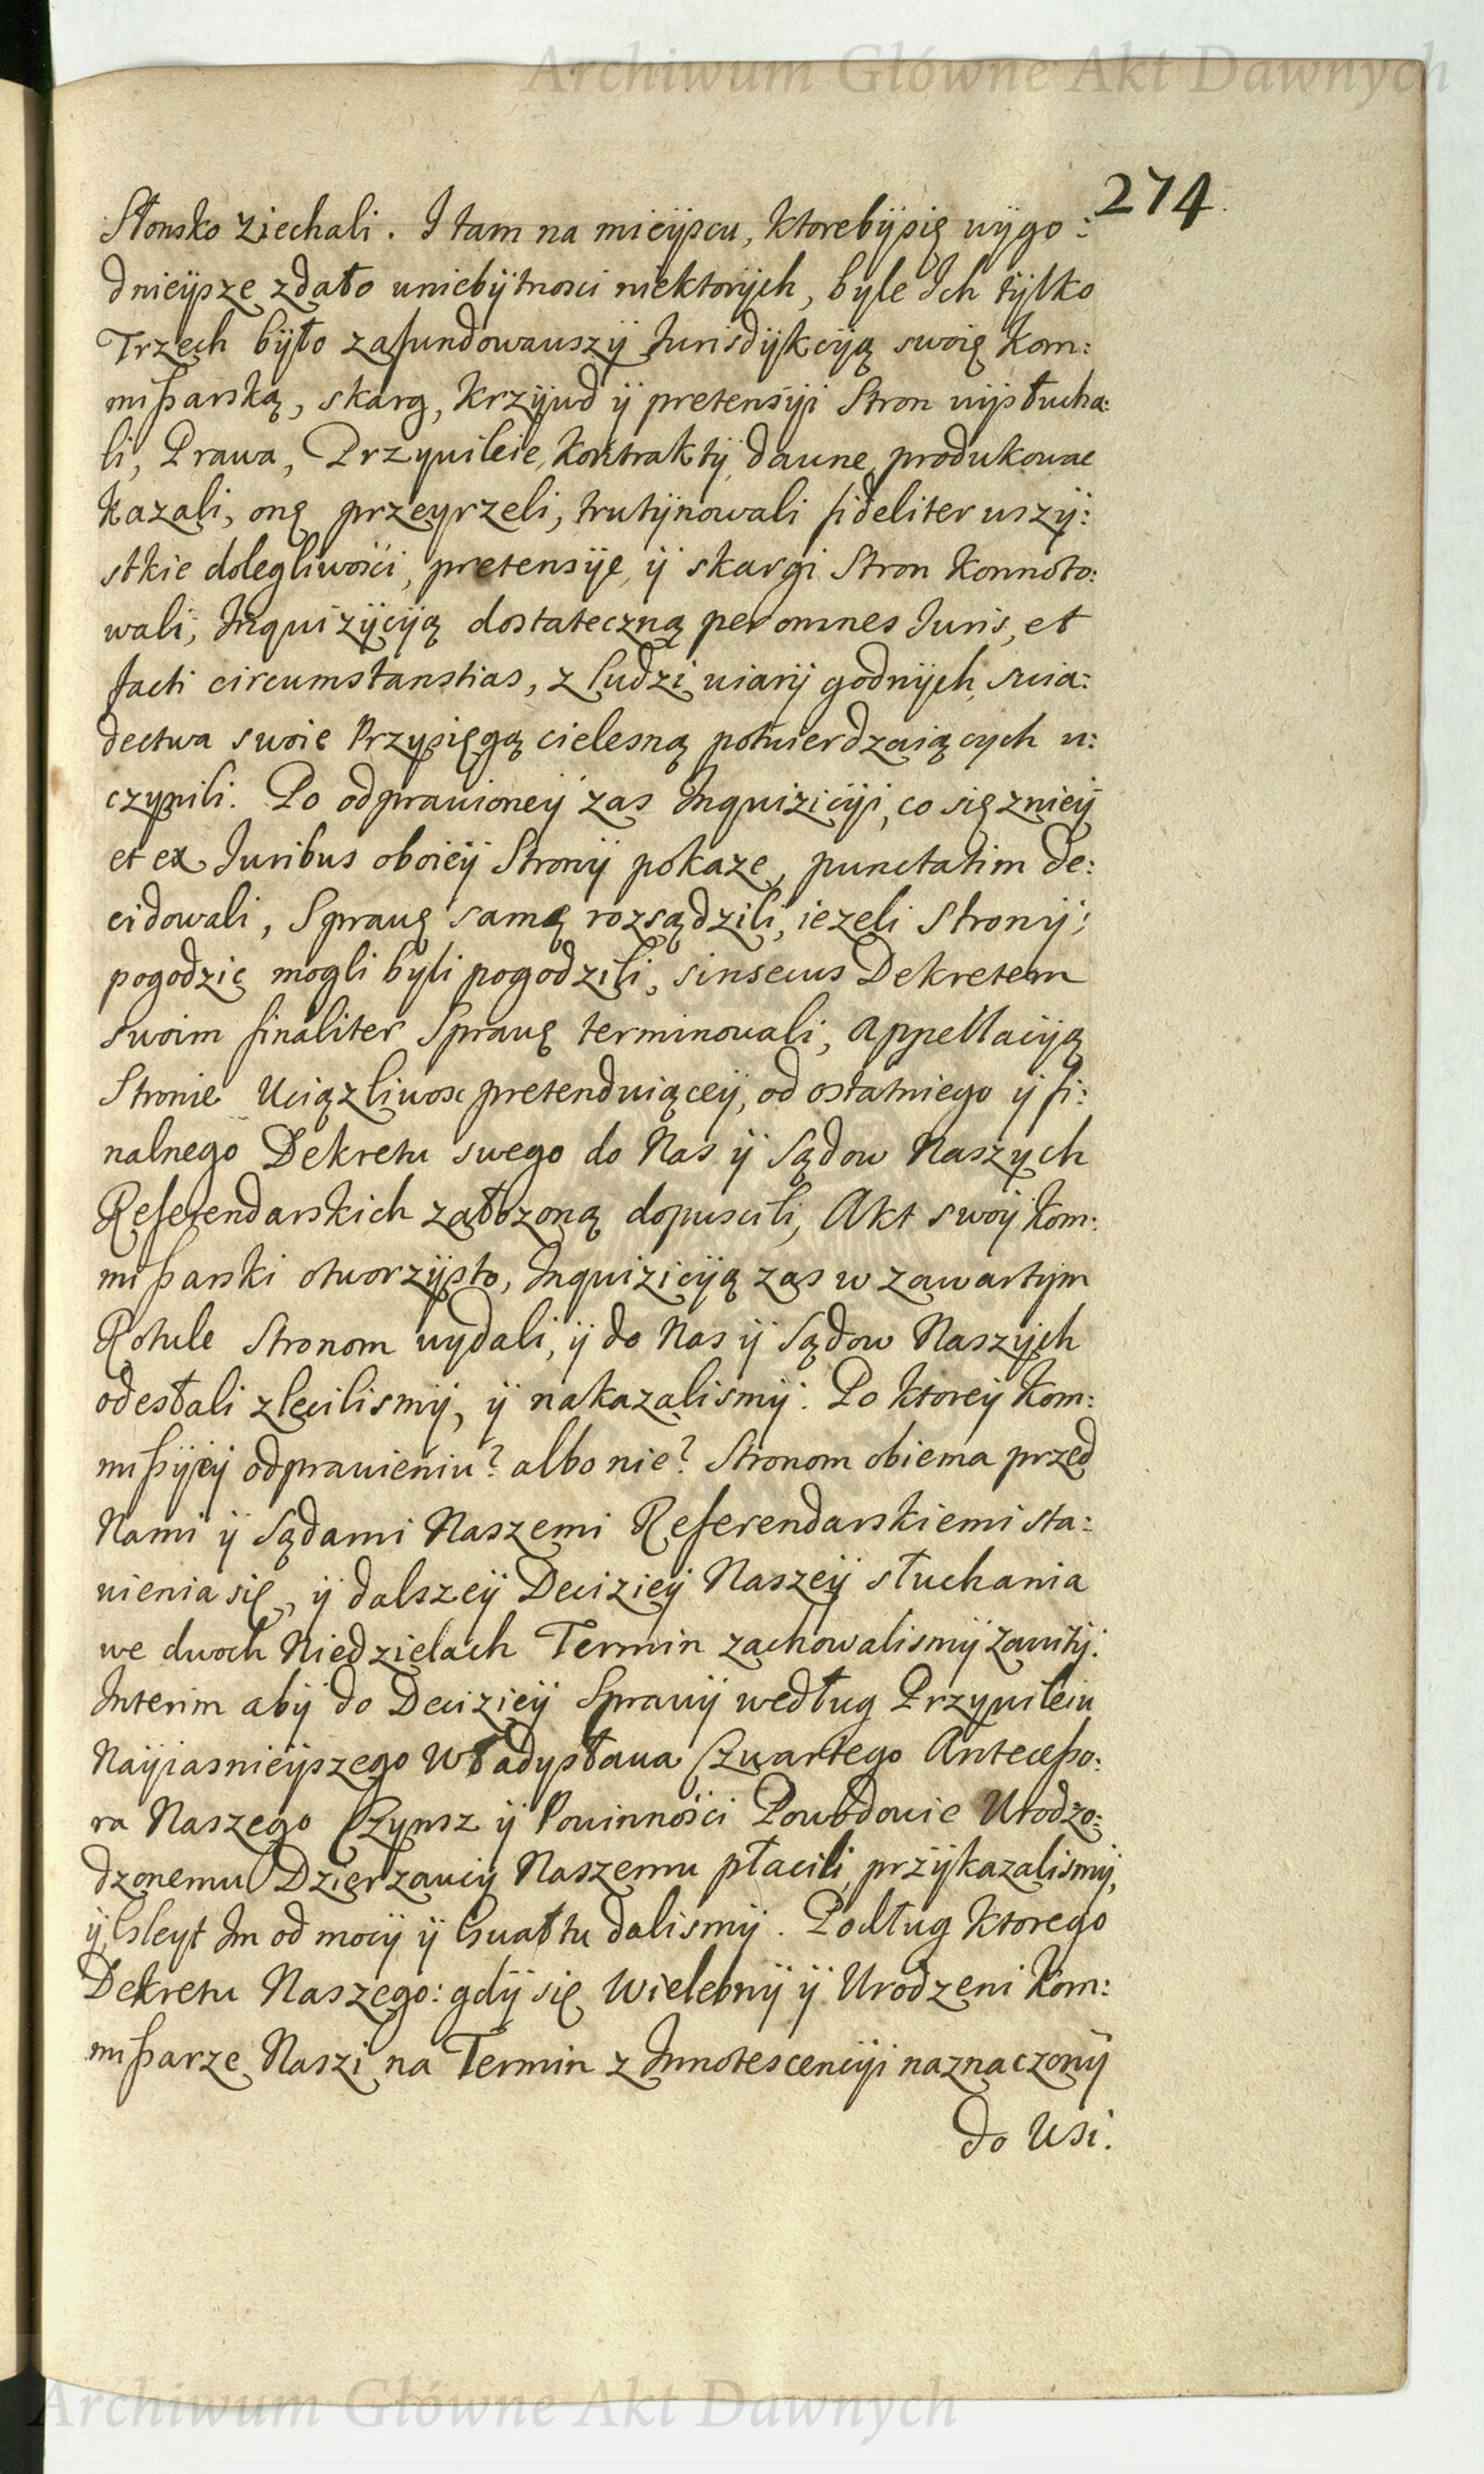 Archiwum Główne Akt Dawnych
274.
Słonsko ziechali. I tam na mieyscu, ktorebysię wygo:
dnieysze zdało wniebytnosci niektorych, byle Ich tylko
Trzech było zafundowawszy Iurisdykcyą swoię Kom:
mißarską, skarg, krzywd y pretensyi Stron wysłucha:
li, Prawa, Przywileie, Kontrakty dawne produkowac
kazali, onę przeyrzeli, trutynowali fideliter wszy:
stkie dolegliwości, pretensye, y skargi Stron konnoto:
wali, Inquizycyą dostateczną per omnes Iuris, et
facti circumstanstias, z ludzi wiary godnych, swia:
dectwa swoie Przysięgą cielesną potwierdzaiących u:
czynili. Po odprawioney zas Inquizicyi, co się zniey
et ex Iuribus oboiey Strony pokaze, punctatim de:
cidowali, Sprawę samą rozsądzili, iezeli Strony:
pogodzic mogli byli pogodzili, sinsecus Dekretem
swoim finaliter Sprawę terminowali, Appellacyą
Stronie Uciązliwosc pretenduiącey, od ostatniego y fi:
nalnego Dekretu swego do Nas y Sądow Naszych
Referendarskich załozoną dopuscili, Akt swoy Kom:
mißarski otworzysto, Inquizicyą zas w zawartym
Rotule Stronom wydali, y do Nas y Sądow Naszych
odesłali zlecilismy, y nakazalismy. Po ktorey Kom:
mißyiey odprawieniu? albo nie? Stronom obiema przed
Nami y Sądami Naszemi Referendarskiemi sta:
wienia się, y dalszey Deciziey Naszey słuchania
we dwoch Niedzielach Termin zachowalismy zawity.
Interim aby do Deciziey Sprawy według Przywileiu
Nayiasnieyszego Władysława Czwartego Anteceßo:
ra Naszego Czynsz y Powinności Powodowie Urodzo:
dzonemu Dzierzawcy Naszemu płacili, przykazalismy,
y Gleyt Im od mocy y Gwałtu dalismy. Podług ktorego
Dekretu Naszego: gdy się Wielebny y Urodzeni Kom:
mißarze Naszi na Termin z Innotescencyi naznaczony
do Wsi.
Archiwum Główne Akt Dawnych